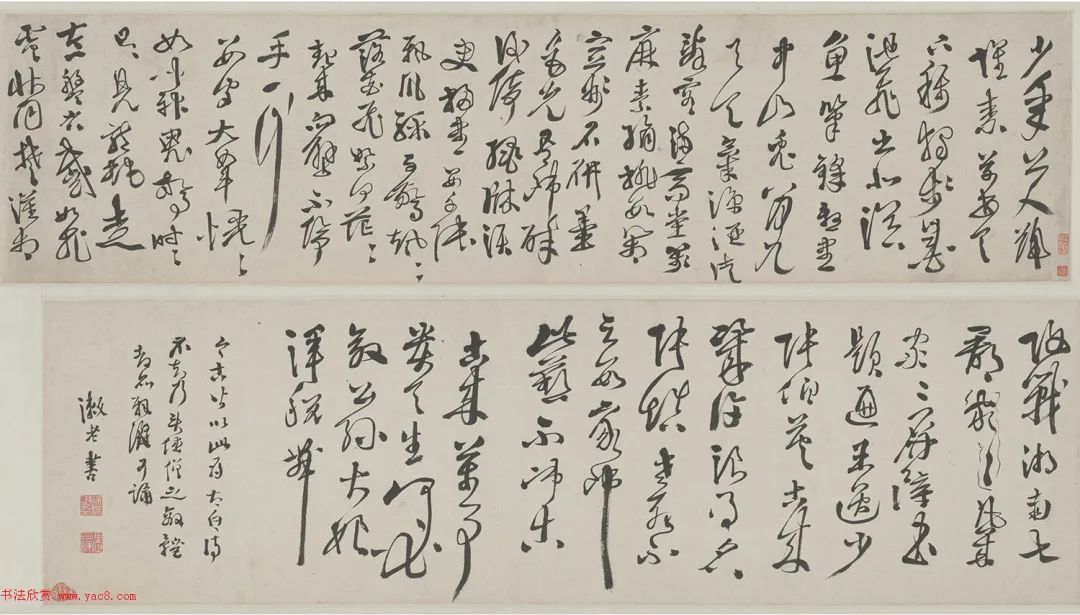 少年上人號
懷素草書天
下稱獨步墨
池飛出北溟
魚筆鋒殺盡
中山兔八月九
月天氣涼酒徒
詞客滿高堂箋
麻素絹排數箱
宣州石研墨
色光吾師醉
後倚繩床須
臾掃盡數千張
飄風驟雨驚颯〻
落花飛雪何茫〻
起來向壁不停
手一行
數字大如斗怳〻
如聞神鬼驚時〻
只見龍蛇走
左盤右蹙如飛
電狀同楚漢相
攻戰湖南七
郡凡幾家
家〻屏障書
題遍王逸少
張伯英古來
幾許浪得名
張顛老死不
足數我師
此義不師古
古來萬事
貴天生何必
要公孫大娘
渾脫舞
今古皆以此為太白詩
不知乃
老書
书法欣赏 www.yac8.com